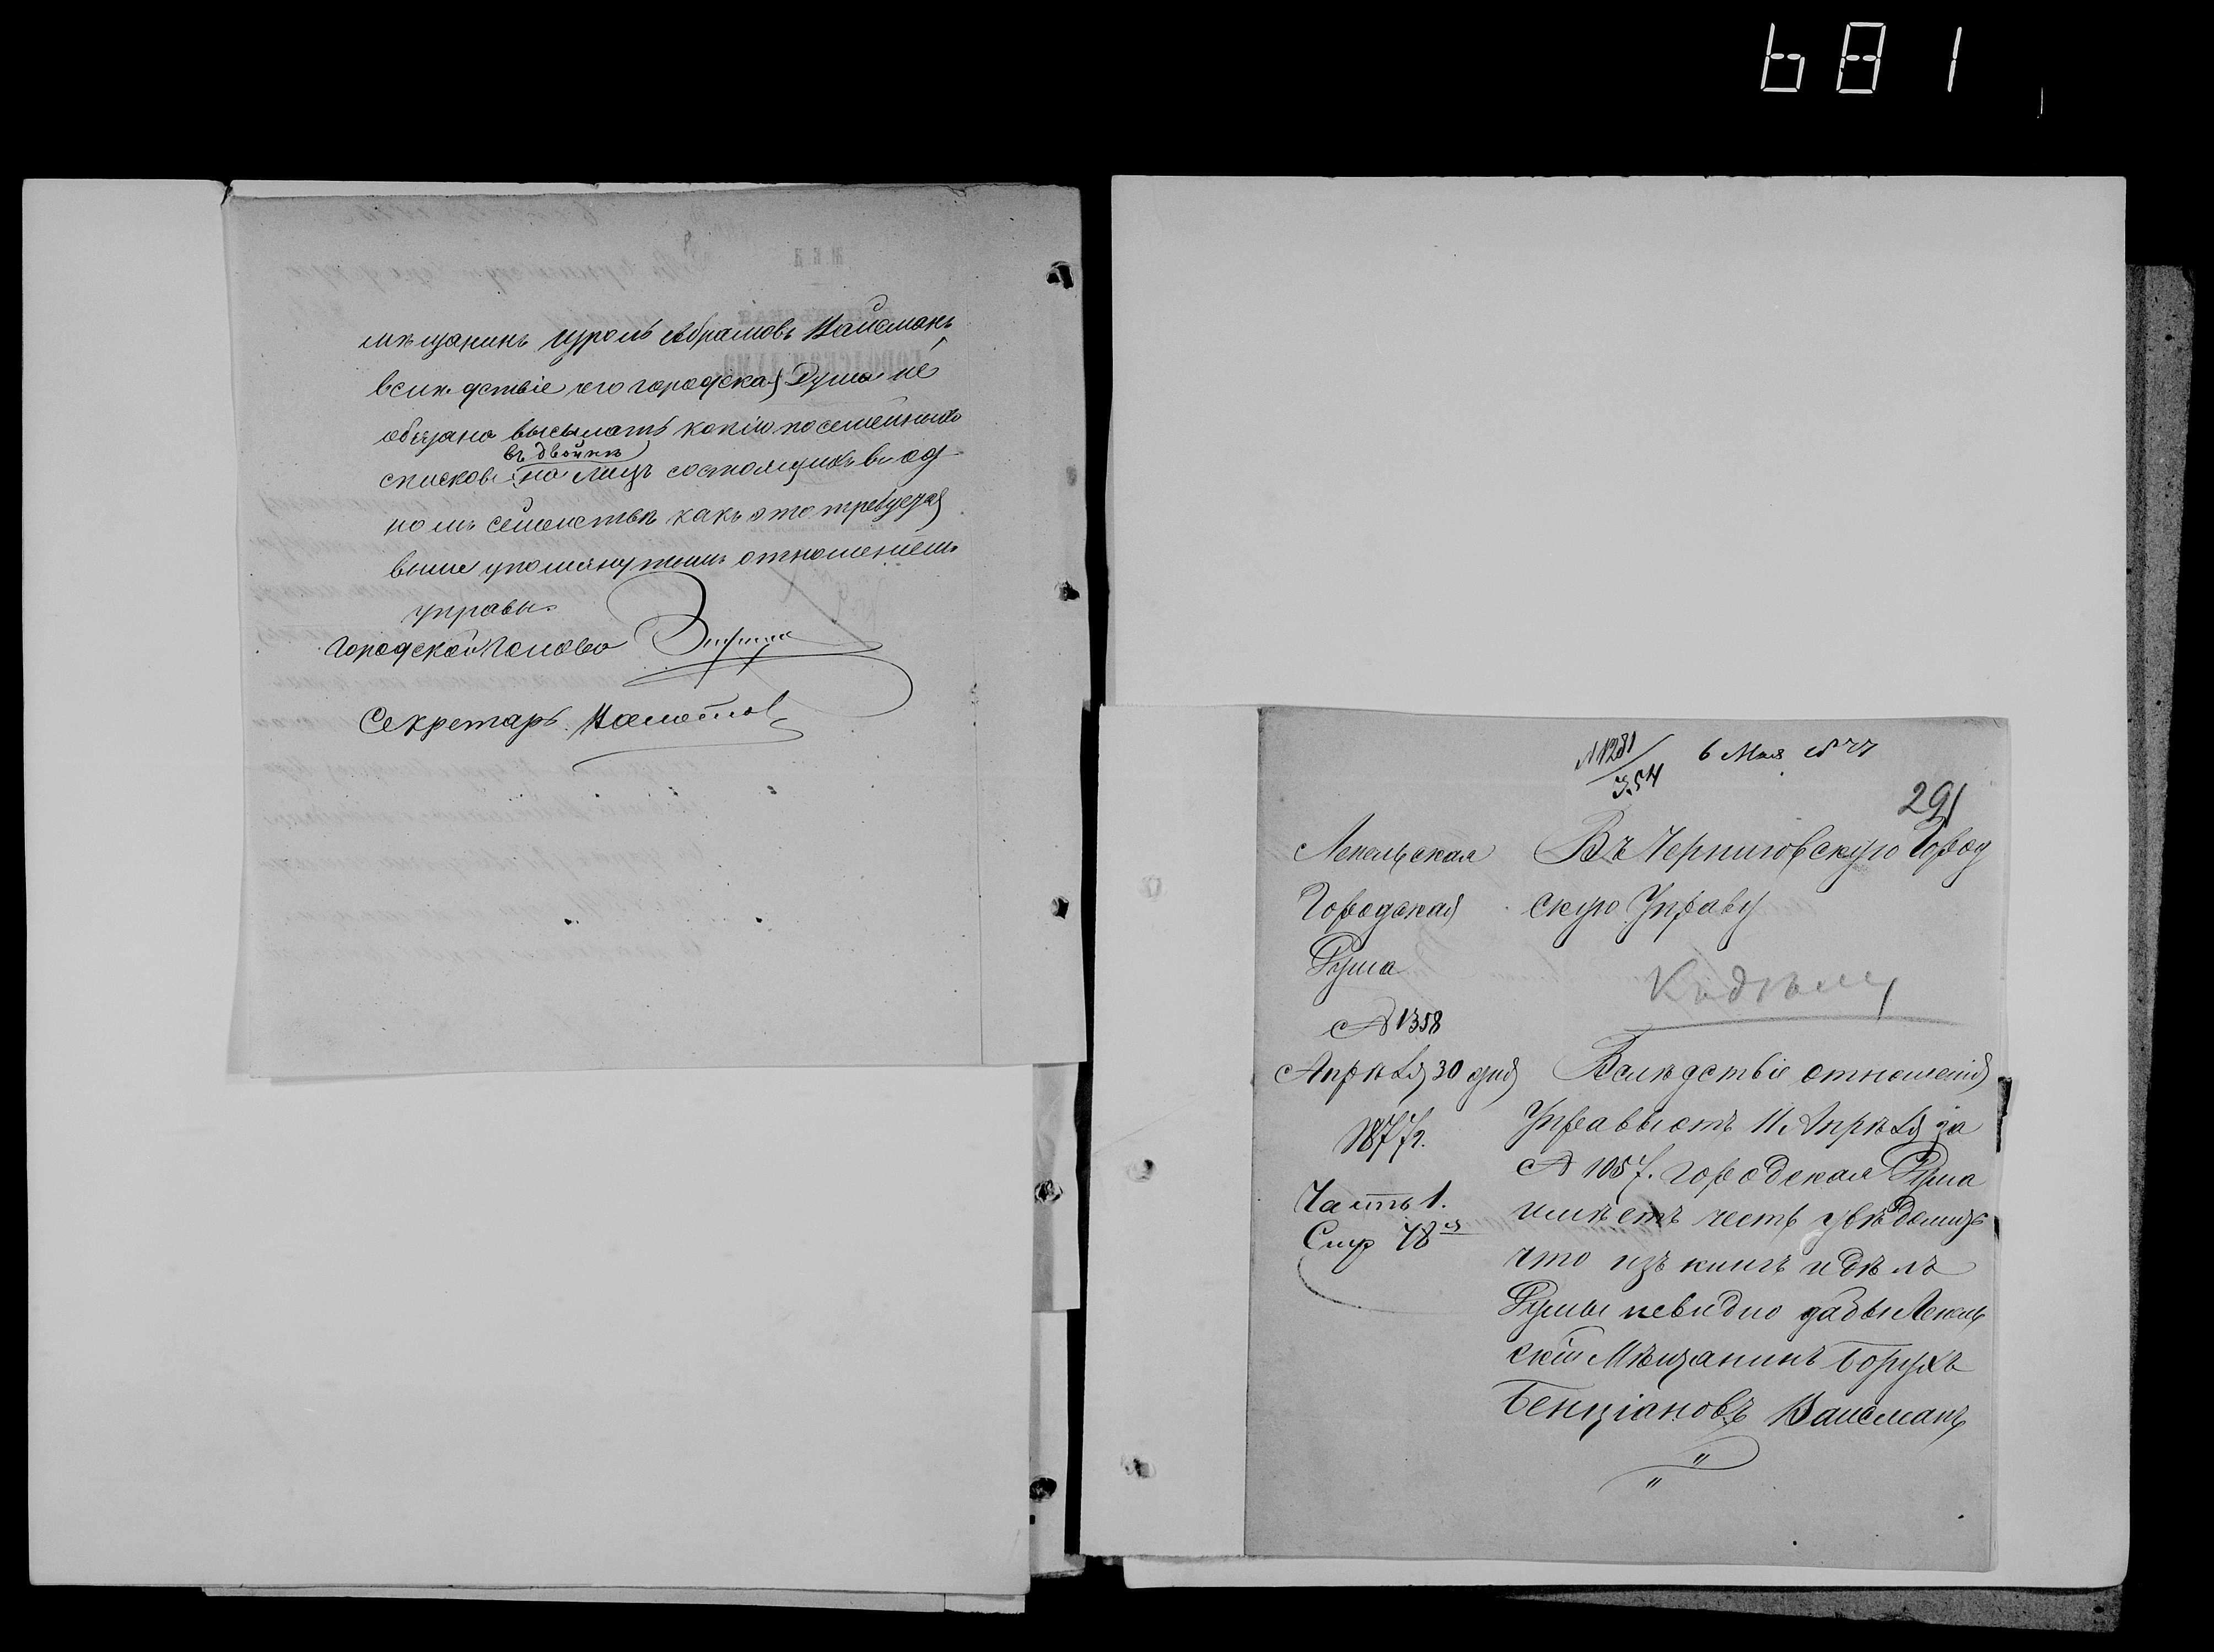 681
мѣщанинъ Изроль Абрамовъ Вайсманъ
вслѣдствіе чего городская Дума не
обязана высылать копію посемейныхъ
въ двойнѣ
списковъ на лицъ состоящихъ въ од
номъ семействѣ какъ это требуется
выше упомянутымъ отношеніемъ
управы.
Городской Голова
Секретарь
№1281/354 6 Мая 1877
291
Лепельская
Городская
Дума
№ 1358
Апрѣля 30 дня
1877 г.
Часть 1.
Стр 78я
Въ Черниговскую Город
скую Управу
Къ дѣлу
Вслѣдствіе отношенія
Управы отъ 11 Апрѣля за
№ 1057. Городская Дума
имѣетъ честь увѣдомить
что изъ книгъ и дѣлъ
Думы невидно дабы Лепель
скій Мѣщанинъ Борухъ
Бенціановъ Вайсманъ